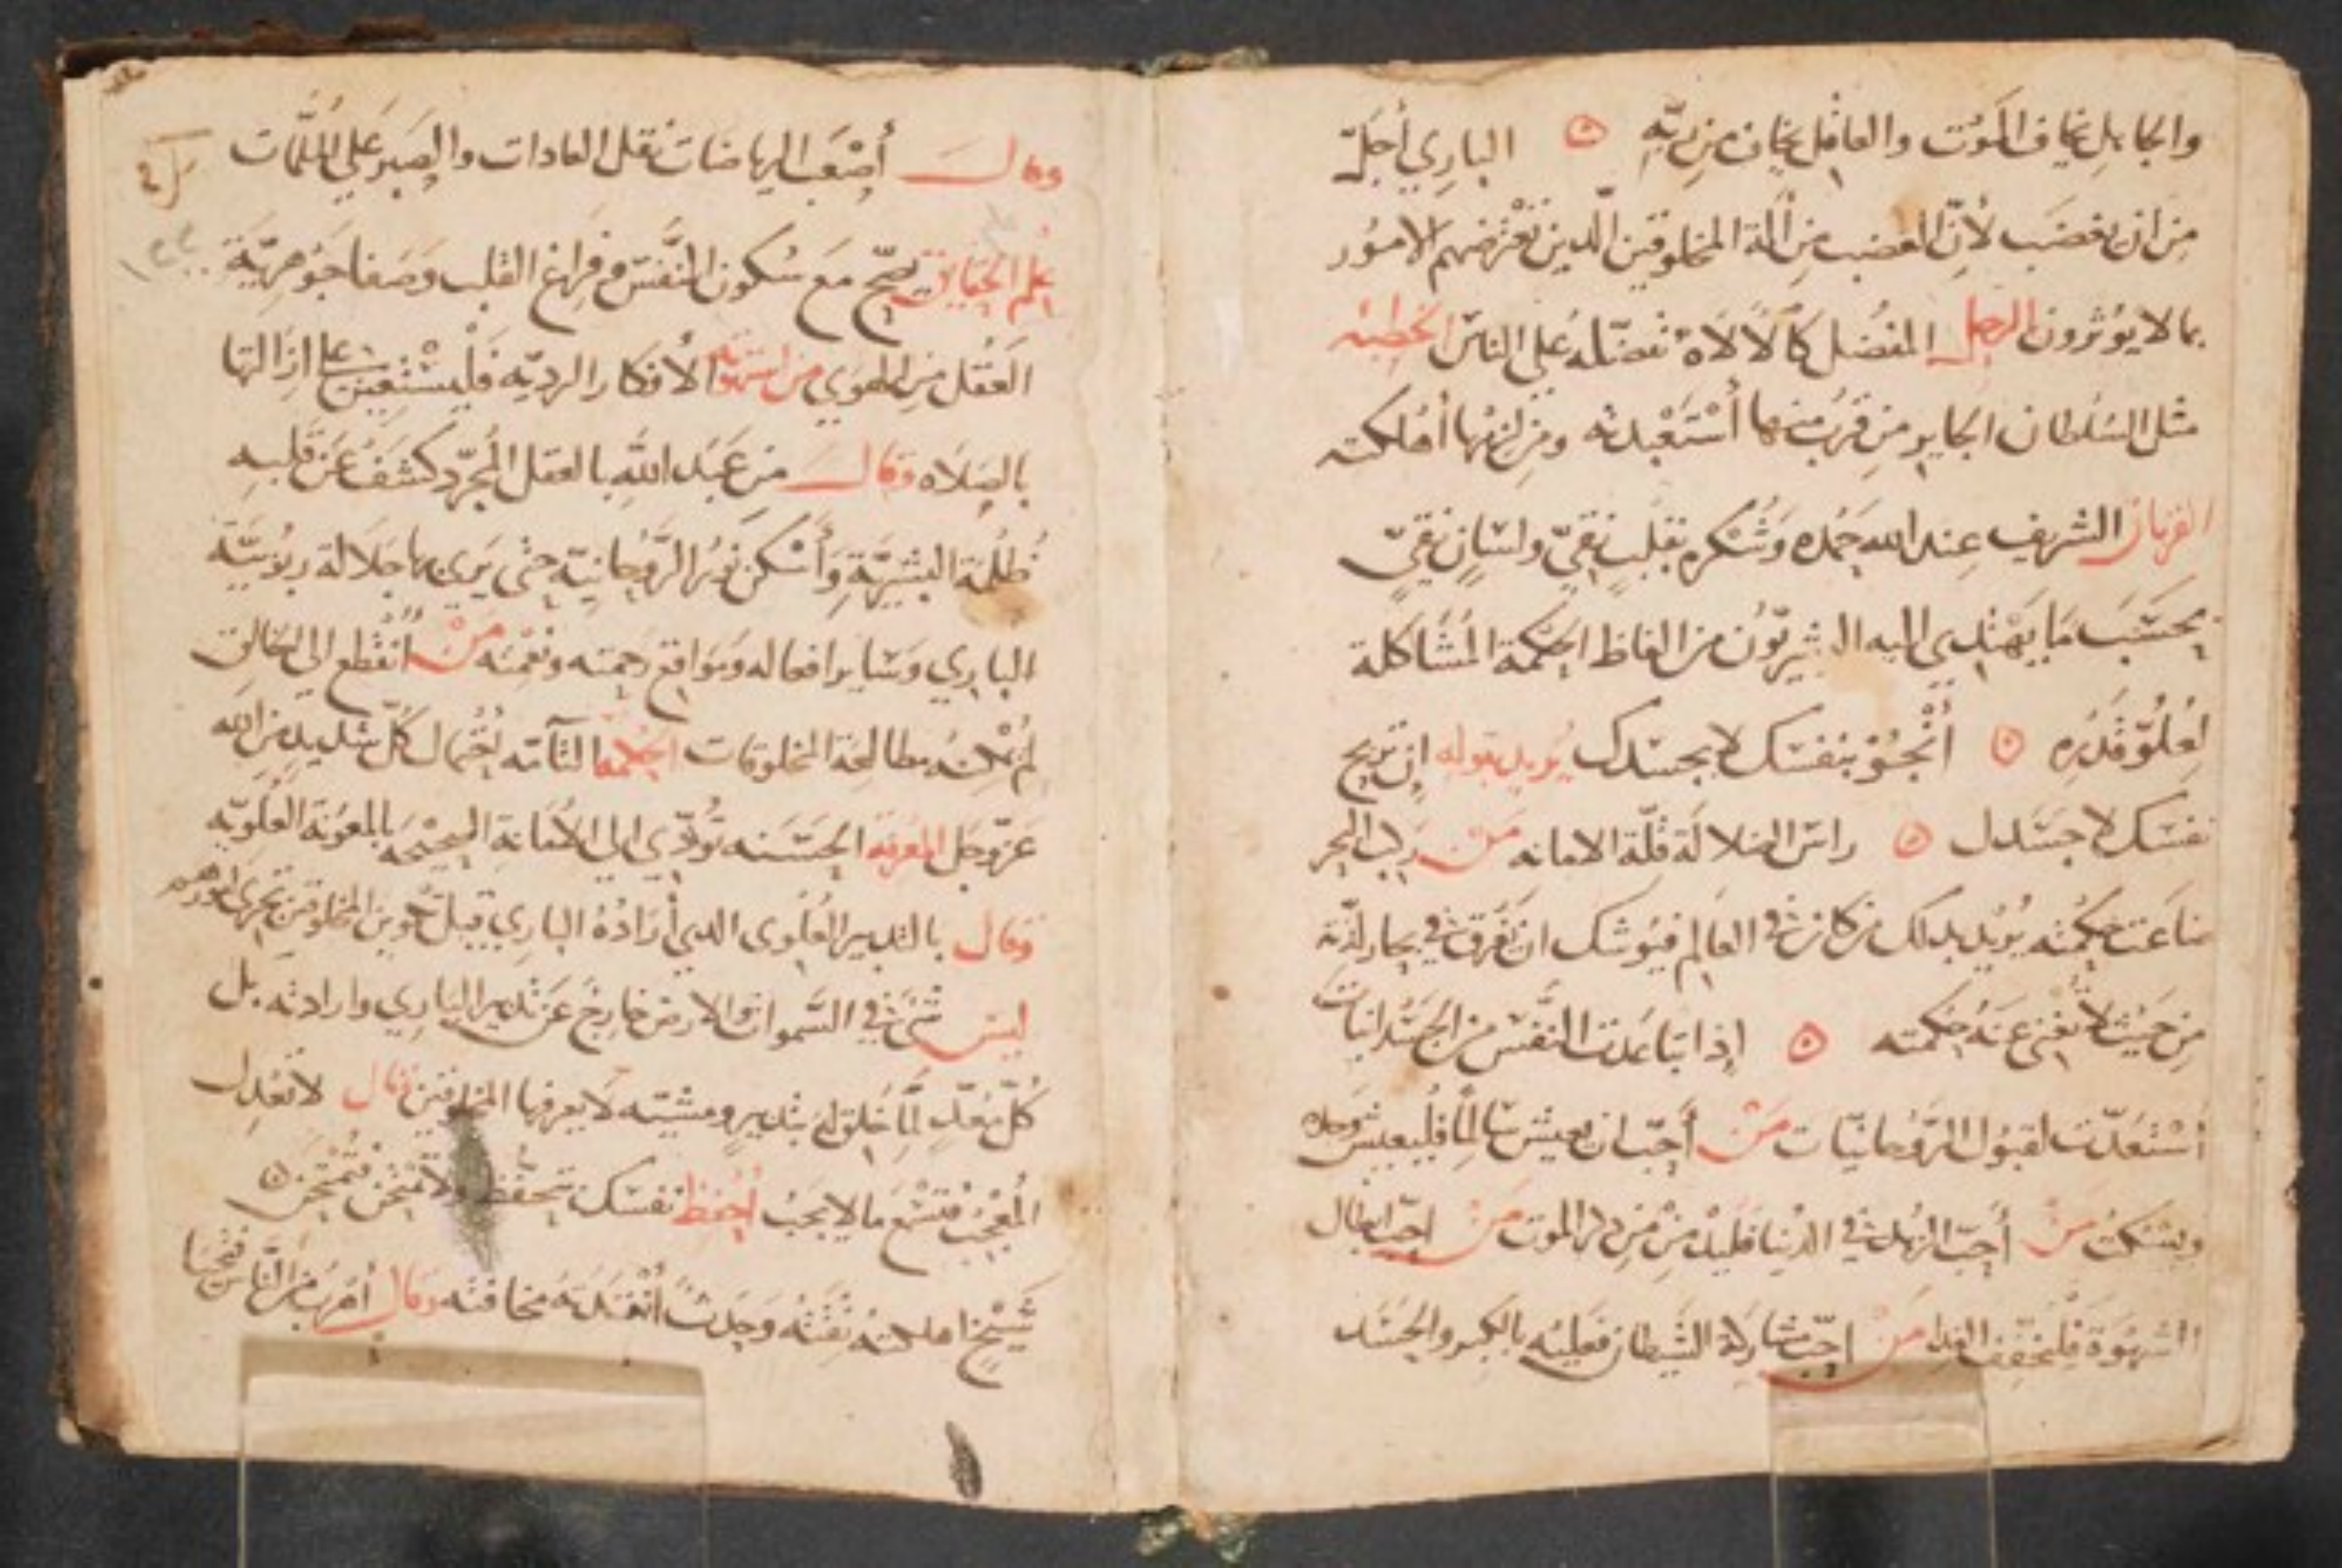 والجاهل يخاف الموت والعاقل يخاف من ربه ۞ الباري أجلّ
من ان يغضب لأنّ الغضب من آلة المخلوقين الّذين تعترضهم الامور
بما لا يوثرون الرجل المفضل كمالاً لاه تفضّله على الناس الخطيه
مثل السلطان الجاير من قرب منها أستعبدته ومن لزمها أهلكته
القربان الشريف عند الله حمده وشكره بقلب نقيّ ولسان نقيّ
بحسب ما يهتدي اليه البشريّون من الفاظ الحكمة المشاكلة
لعلوّ قدره ۞ أنجو بنفسك لا بجسدك يريد بقوله ان تريح
نفسك لا جسدك ۞ راس الضلالة قلّة الامانه من ركب البحر
ضاعت حكمته يريد بذلك من كان في العالم فيوشك ان تغرق في بحار لذّته
من حيث لا تغني عنه حكمته ۞ إذا تباعدت النفس من الجسدانيات
أستعدّت لقبول الروحانيّات من أحبّ ان يعيش سالماً فليعيش وحده
ويسكت من أحبّ الزهد في الدنيا فليدمن من ذكر الموت من احبّ ابطال
الشهوة فليخفّف الغدا من احبّ مشاركة الشيطان فعليه بالكبر والحسد
وقال أصعب الرياضات نقل العادات والصبر على الملمّات
علم الحقايق يصحّ مع سكون النفس وفراغ القلب وصفا جوهريّة
العقل من الهوى من الأفكار الرديّه فليستعين على ازالتها
بالصلاه وقال من عبد الله بالعقل المجرّد كشف عن قلبه
ظلمة البشريّة وأسكن الرّوحانيّة حتى يرى بها جلالة ربوبيّة
الباري وساير افعاله ومواقع رحمته ونعمته من أنقطع الى الخالق
لم مطالحة المخلوقات التآمّه احتمال كلّ شديد من الله
عزّ وجل المعرفة الحسنه تودّي الي الأمانة الصحيحه بالمعونة العلويّه
وقال بالتدبير العلوى الذي أراده الباري قبل تكوين المخلوقين تجرى امورهم
ليس شي في السموات والارض خارج عن تدبير الباري وارادته بل
كلّ معدّ لما خلق له بتدبير ومشيّته لا يعرفها المخلوقين قال لا تعدل
المعجب فتسمع ما لا يجب أحفظ نفسك تتحفّظ ولا تمتحن فتمتحن ۞
شيخ اهلكته ثقته وجدث أنقذته مخافته وقال أهرب من النّاس